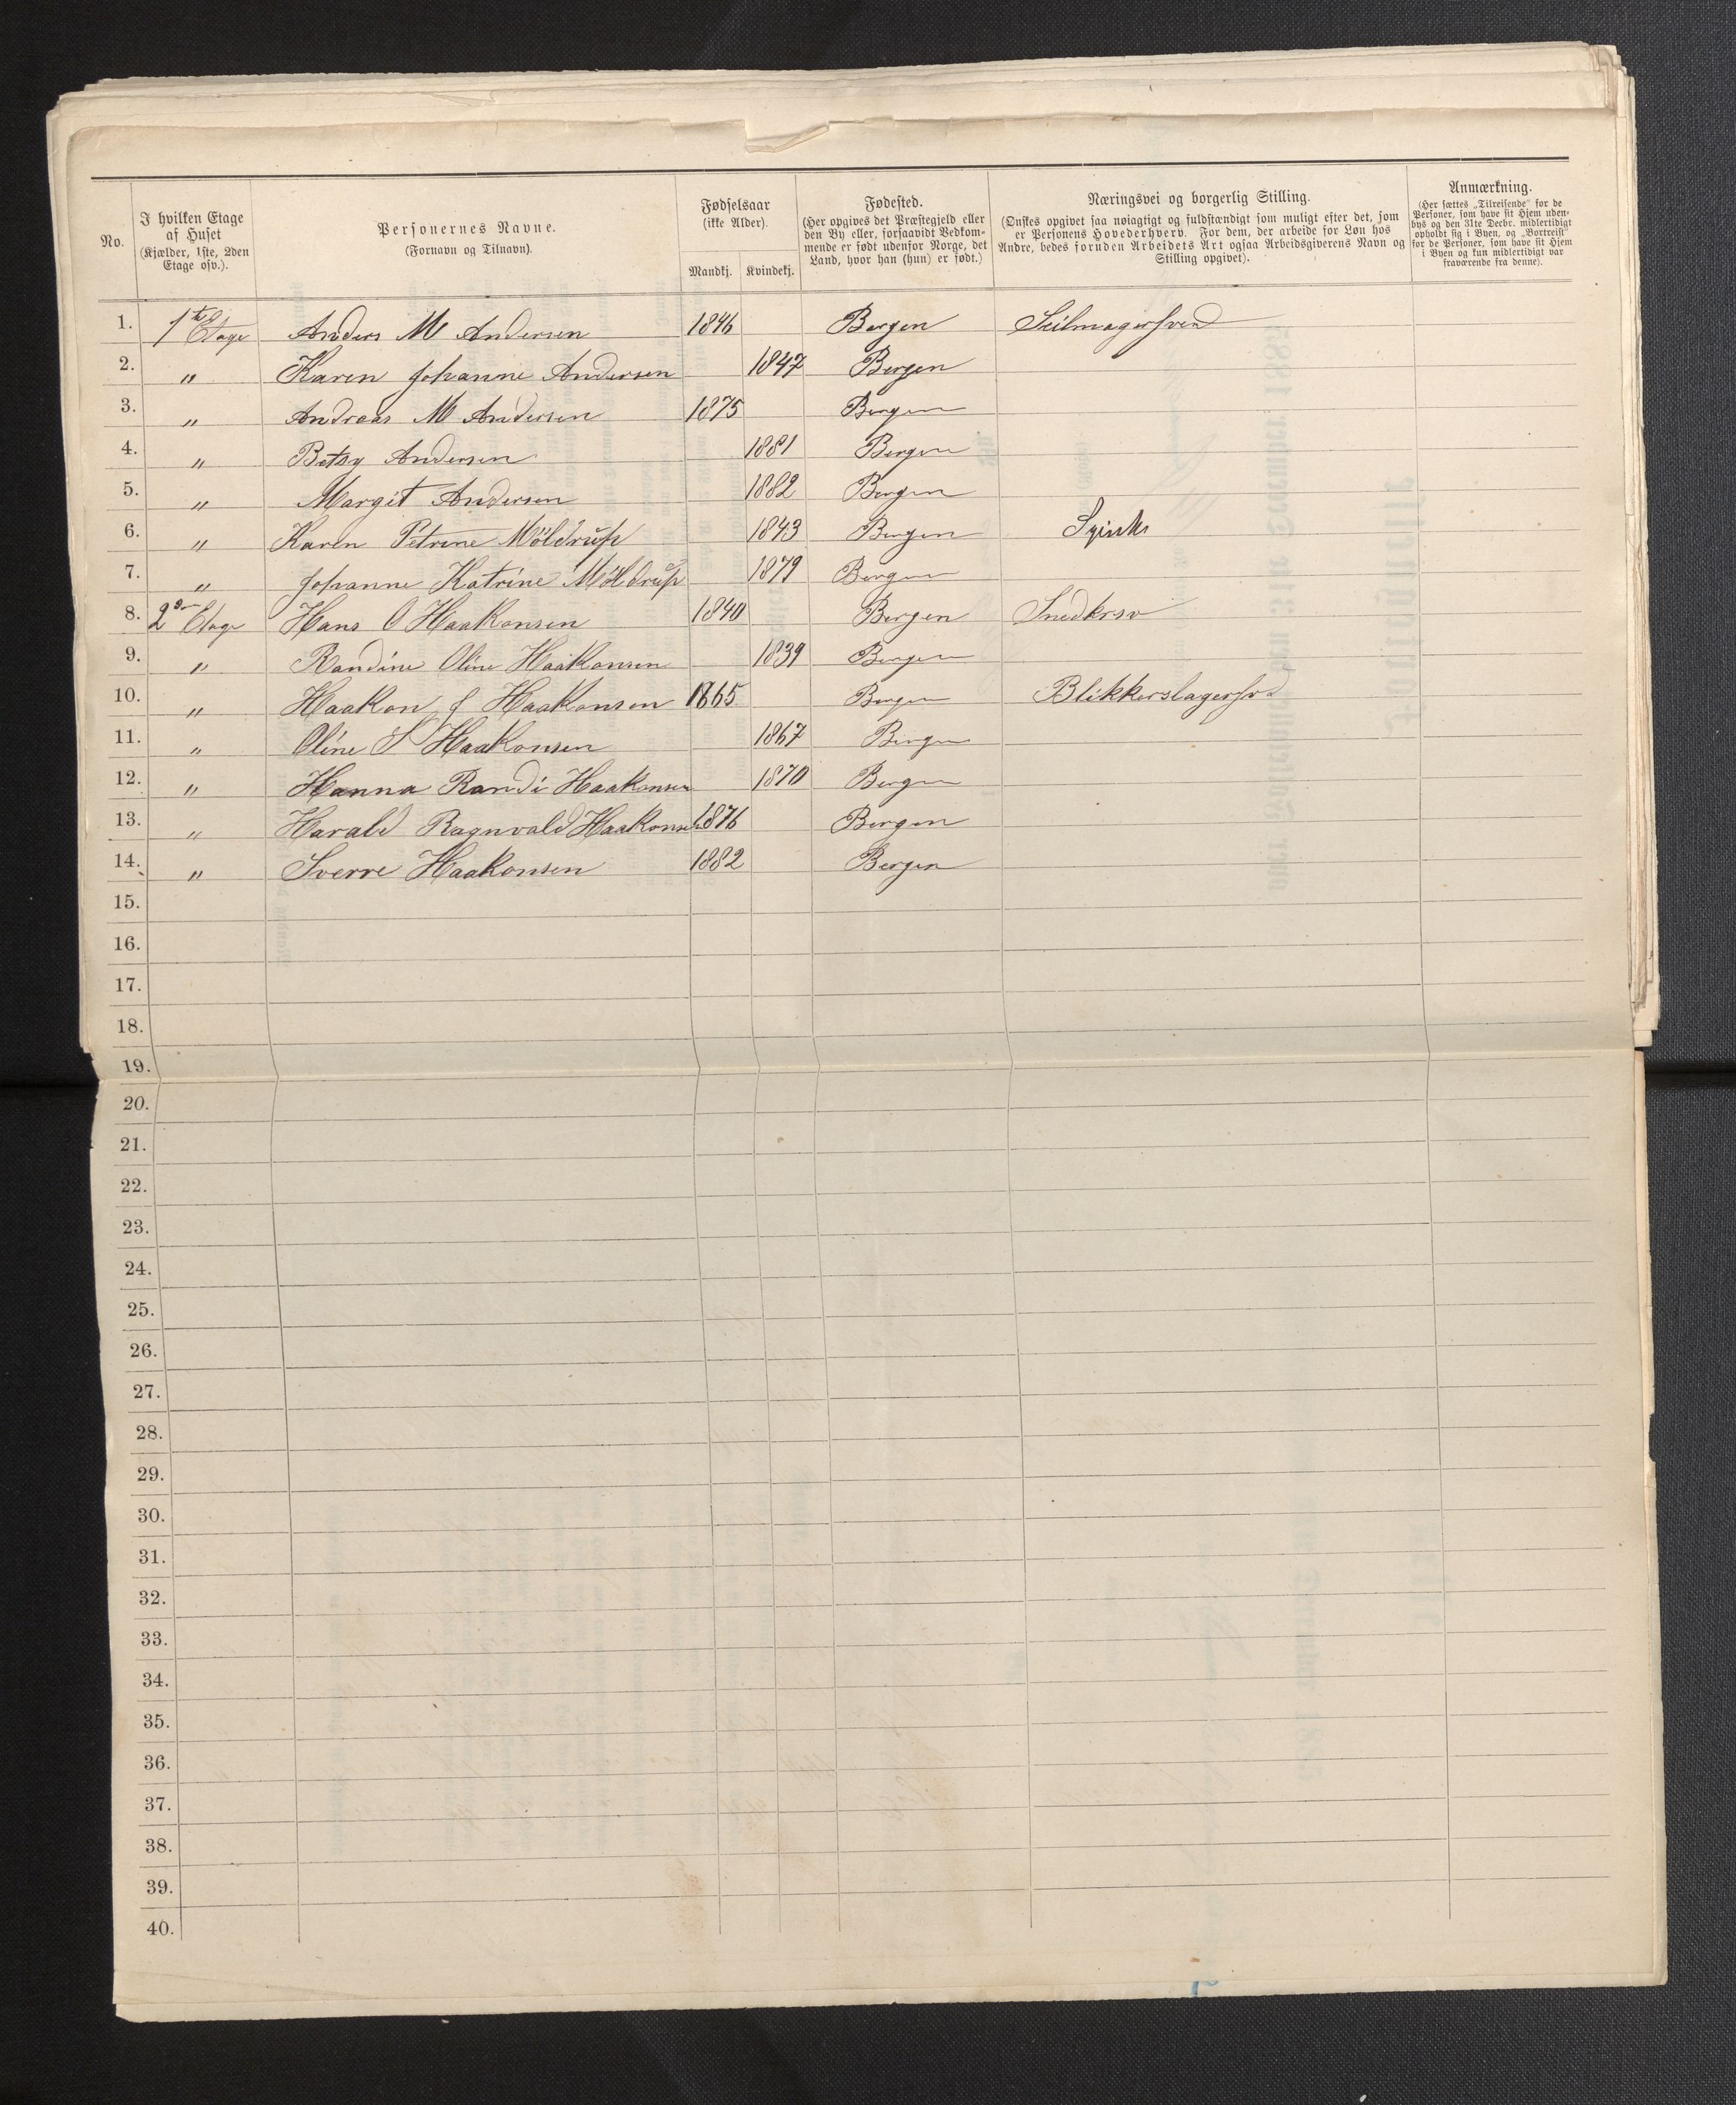 No.
I hvilken Etage af Huset (Kjælder, 1ste, 2den Etage osv.).
Personernes Navne. (Fornavn og Tilnavn).
Fødselsaar (ikke Alder).
Mandkj. Kvindekj.
Fødested. (Her opgives det Præstegjeld eller den By eller, forsaavidt Vedkommende er født udenfor Norge, det Land, hvor han (hun) er født.)
Næringsvei og borgerlig Stilling. (Ønskes opgivet saa nøiagtigt og fuldstændigt som muligt efter det, som er Personens Hovederhverv. For dem, der arbeide for Løn hos Andre, bedes foruden Arbeidets Art ogsaa Arbeidsgiverens Navn og Stilling opgivet).
Anmærkning. (Her sættes „Tilreisende" for de Personer, som have sit Hjem udenbys og den 31te Decbr. midlertidigt opholdt sig i Byen, og „Bortreist" for de Personer, som have sit Hjem i Byen og kun midlertidigt var fraværende fra denne).
1. 1ste Etage Anders M Andersen 1846 Bergen Seilmagersvend
2. " Karen Johanne Andersen 1847 Bergen
3. " Andreas M Andersen 1875 Bergen
4. " Betsy Andersen 1881 Bergen
5. " Margit Andersen 1882 Bergen
6. " Karen Petrine Möldrŭp 1843 Bergen
7. " Johanne Katrine Möldrŭp 1879 Bergen
8. 2den Etage Hans O Haakonsen 1840 Bergen Snedkersv
9. " Randine Oline Haakonsen 1839 Bergen
10. " Haakon J Haakonsen 1865 Bergen Blikkerslagersvd
11. " Oline S Haakonsen 1867 Bergen
12. " Hanna Randi Haakonsen 1870 Bergen
13. " Harald Ragnvald Haakonsen 1876 Bergen
14. " Sverre Haakonsen 1882 Bergen
15.
16.
17.
18.
19.
20.
21.
22.
23.
24.
25.
26.
27.
28.
29.
30.
31.
32.
33.
34.
35.
36.
37.
38.
39.
40.